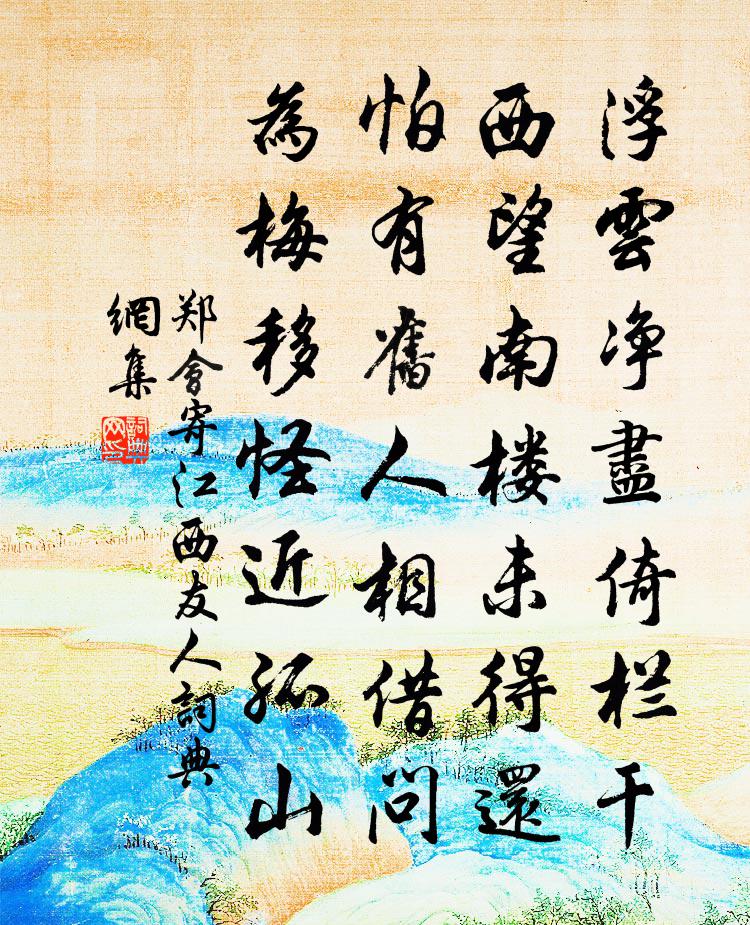 浮雲净盡倚栏干
西望南楼未得還
怕有舊人相借问
為梅移怪近孤山
郑會寄江西友人詞典
網集